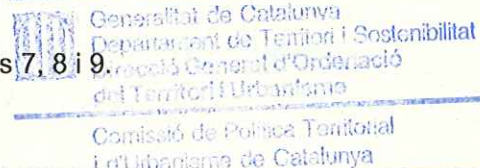 Generalitat de Catalunya
Departament de Territori i Sostenibilitat
s 7, 8 i 9.
Direcció General d'Ordenació
del Territori i Urbanisme
Comissió de Política Territorial
i d'Urbanisme de Catalunya